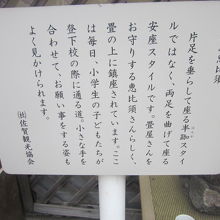 恵比須
片足を垂らして座る半跏スタイ
ルではなく、両足を曲げて座る
安座スタイルです。畳屋さんを
お守りする恵比須さんらしく、
畳の上に鎮座されています。ここ
は毎日、小学生の子どもたちが
登下校の際に通る道。小さな手を
合わせて、お願い事をする姿も
よく見かけられます。
㈳佐賀観光協会